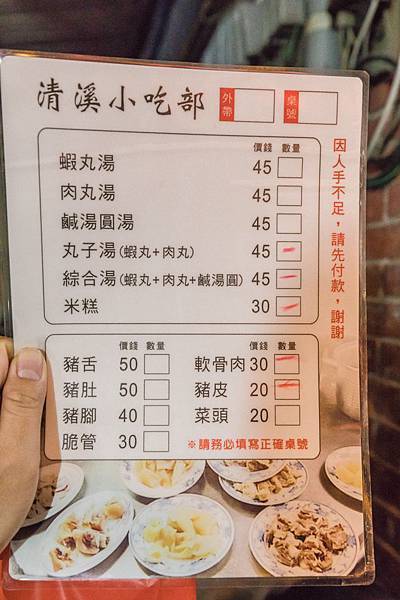 清溪小吃部 外帶 桌號
價錢 數量
蝦丸湯 45
肉丸湯 45
鹹湯圓湯 45
丸子湯(蝦丸+肉丸) 45
綜合湯(蝦丸+肉丸+鹹湯圓) 45
米糕 30
因人手不足，請先付款，謝謝
價錢 數量 價錢 數量
豬舌 50 軟骨肉 30
豬肚 50 豬皮 20
豬腳 40 菜頭 20
脆管 30 ※請務必填寫正確桌號